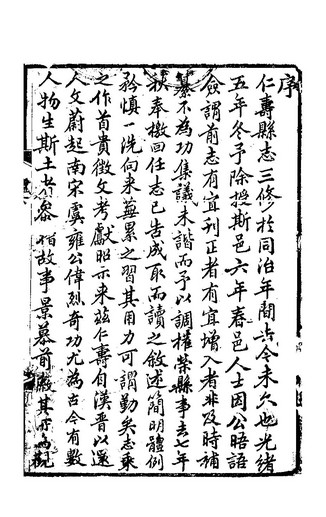 序
仁壽縣志三修於同治年間去今未久也光緒
五年冬予除授斯邑六年春邑人士因公晤語
僉謂前志有宜刊正者有宜增入者非及時補
纂不為功集議未諧而予以調權榮縣事去七年
秋奉檄回任志已告成取而讀之敘述簡明體例
矜慎一洗向來蕪累之習其用力可謂勤矣志乘
之作首貴徵文考獻昭示來茲仁壽自漢晉以還
人文蔚起南宋虞雍公偉烈奇功尤為古今有數
人物生斯土者 故事景慕前徽其 觀